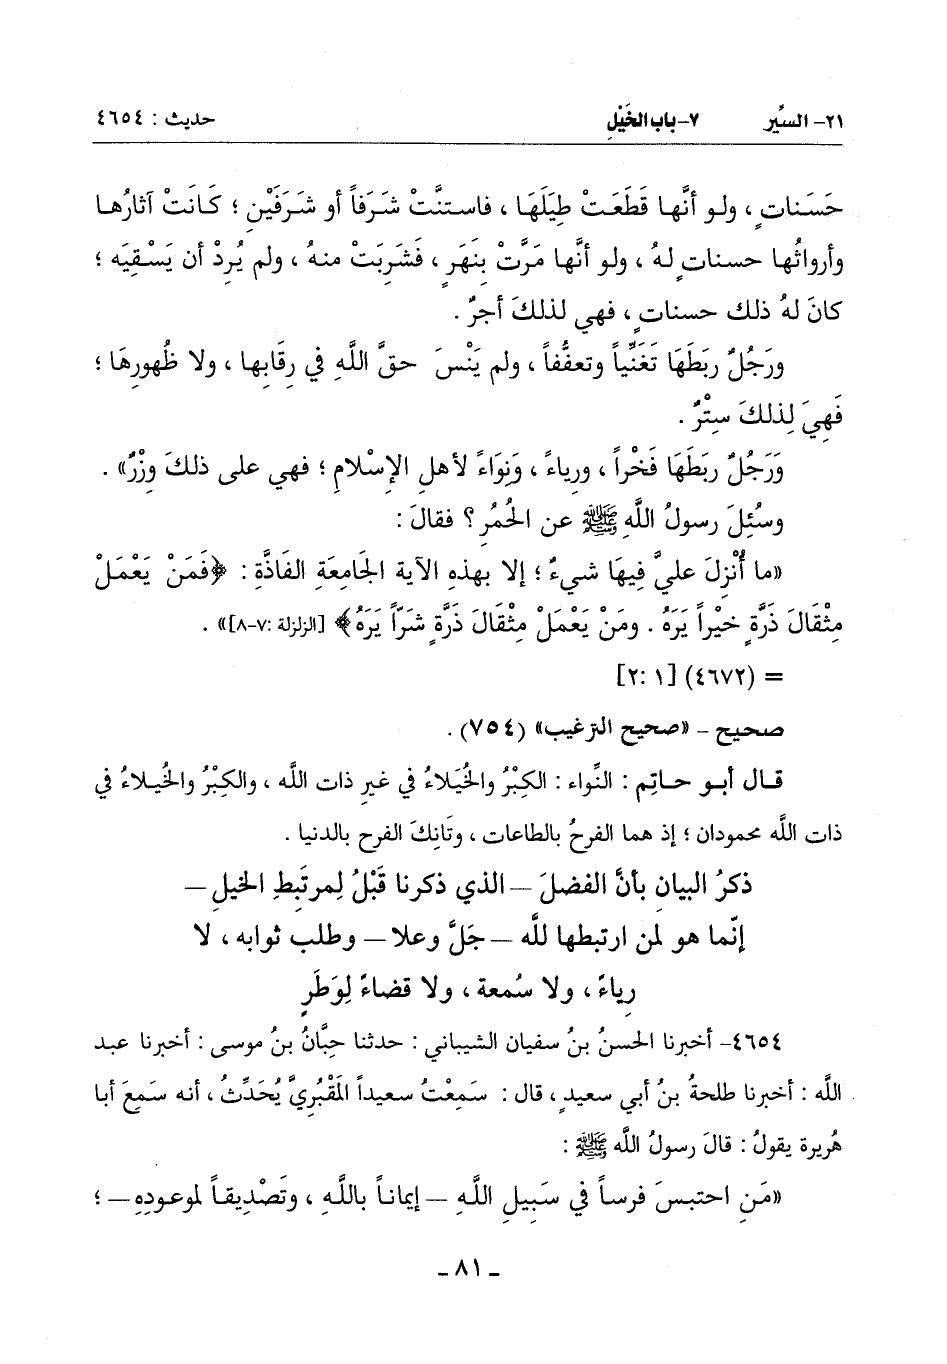 ٢١- السِّير ٧- باب الخَيْلِ حديث : ٤٦٥٤
حَسَنات ٍ، ولو أنَّها قَطَعَتْ طِيَلَهَا ، فاستنَّتْ شَرَفاً أو شَرَفَيْنِ ؛ كَانَتْ آثارُها
وأرواثُها حسنات ٍ لهُ ، ولو أنَّها مَرَّتْ بِنَهَرٍ ، فَشَرِبَتْ منهُ ، ولم يُرِدْ أن يَسْقِيَه ؛
كانَ لهُ ذلك حسنات ٍ، فهي لذلكَ أجرٌ .
ورَجُلٌ ربَطَهَا تَغَنِّياً وتعفُّفاً ، ولم يَنْسَ حقَّ اللَّهِ في رِقَابِها ، ولا ظُهورِهَا ؛
فَهِيَ لِذلكَ سِتْرٌ .
وَرَجُلٌ ربَطَهَا فَخْراً ، ورياءً ، وَنِوَاءً لأهلِ الإسْلامِ ؛ فهي على ذلكَ وِزْرٌ» .
وسُئِلَ رسولُ اللَّهِ ﷺ عن الحُمُرِ ؟ فقالَ :
«ما أُنْزِلَ عليَّ فِيهَا شيءٌ ؛ إلا بهذهِ الآية الجَامِعَةِ الفَاذَّةِ : ﴿فَمَنْ يَعْمَلْ
مِثْقَالَ ذَرَّةٍ خيْراً يَرَهُ . ومَنْ يَعْمَلْ مِثْقَالَ ذَرَّةٍ شرّاً يَرَهُ﴾ [الزلزلة :٧-٨]» .
= (٤٦٧٢) [١ :٢]
صحيح - «صحيح الترغيب» (٧٥٤) .
قال أبو حاتِم : النِّواء : الكِبْرُ والخُيَلاءُ في غيرِ ذات اللَّه ، والكِبْرُ والخُيلاءُ في
ذات اللَّه محمودان ؛ إذ هما الفرحُ بالطاعات ، وتَانِكَ الفرح بالدنيا .
ذكرُ البيان بأنَّ الفضلَ – الذي ذكرنا قَبْلُ لِمرتَبِطِ الخيلِ –
إنّما هو لمن ارتبطها للَّه – جَلَّ وعلا – وطلب ثوابه ، لا
رِياءً ، ولا سُمعة ، ولا قضاءً لِوَطَرٍ
٤٦٥٤- أخبرنا الحسنُ بنُ سفيان الشيباني : حدثنا حِبَّانُ بنُ موسى : أخبرنا عبد
اللَّه : أخبرنا طلحةُ بنُ أبي سعيدٍ ، قال : سَمِعْتُ سعيداً المَقْبُرِيَّ يُحَدِّثُ ، أنه سَمِعَ أبا
هُريرة يقولُ : قالَ رسولُ اللَّه ﷺ :
«مَنِ احتبسَ فرساً في سَبِيلِ اللَّهِ – إيماناً باللَّهِ ، وتَصْدِيقاً لموعودِهِ – ؛
- ٨١ -